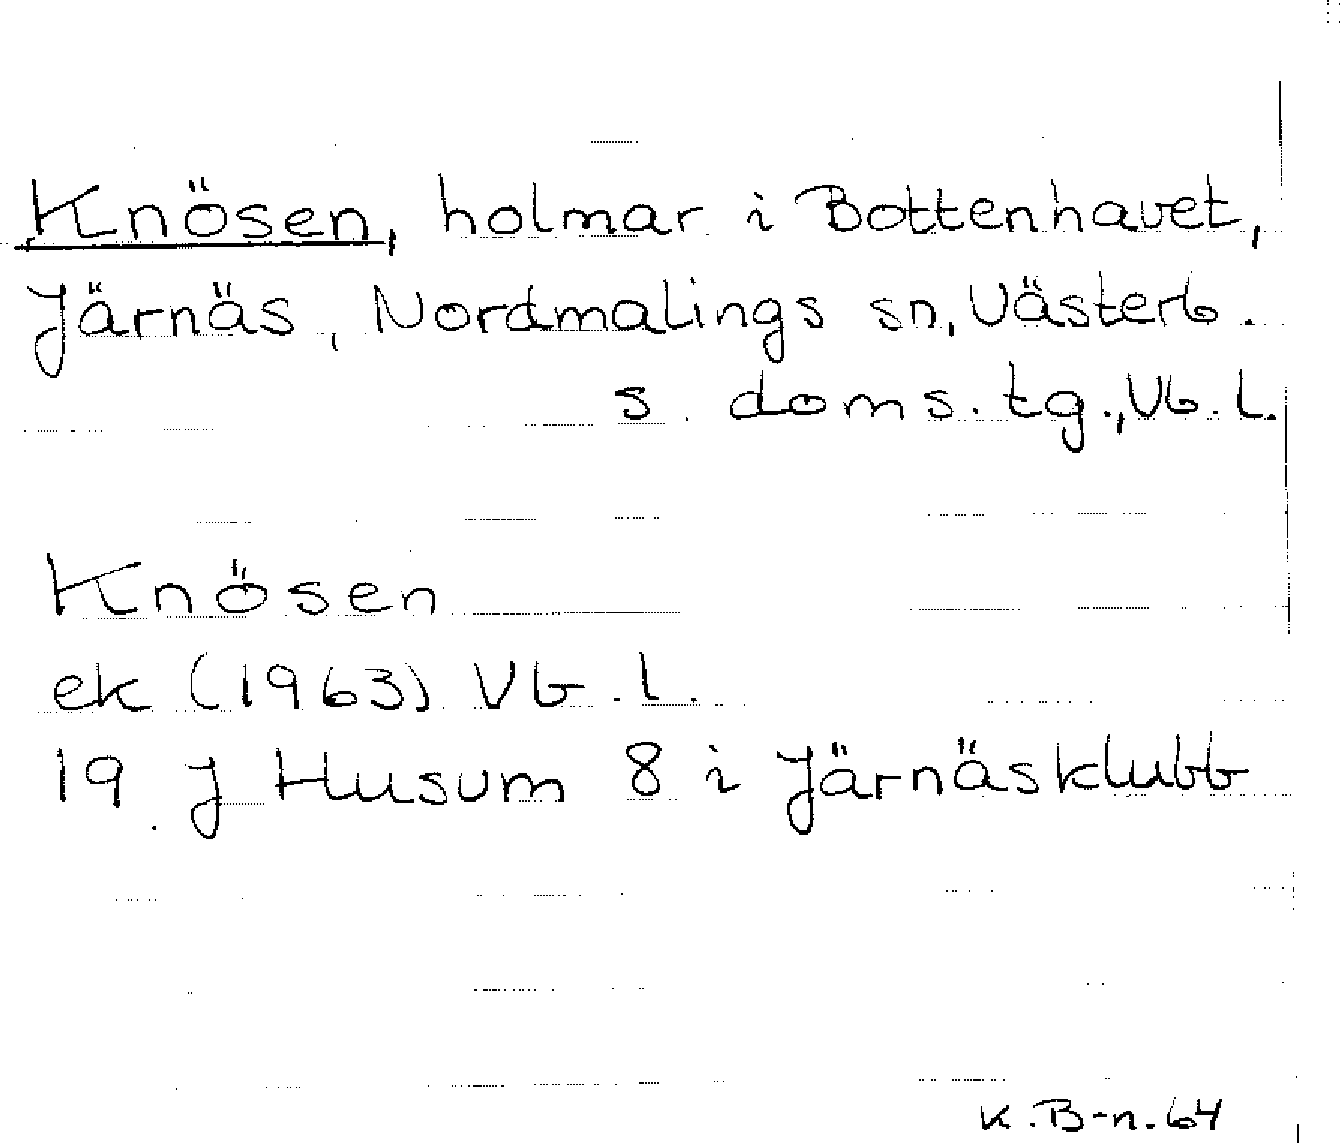 Knösen, holmar i Bottenhavet,
Järnäs, Nordmalings sn, Västerb.
s. doms. tg., Vb. l.
Knösen
ek (1963) Vb. l.
19 J Husum 8 i Järnäsklubb
K. B-n. 64